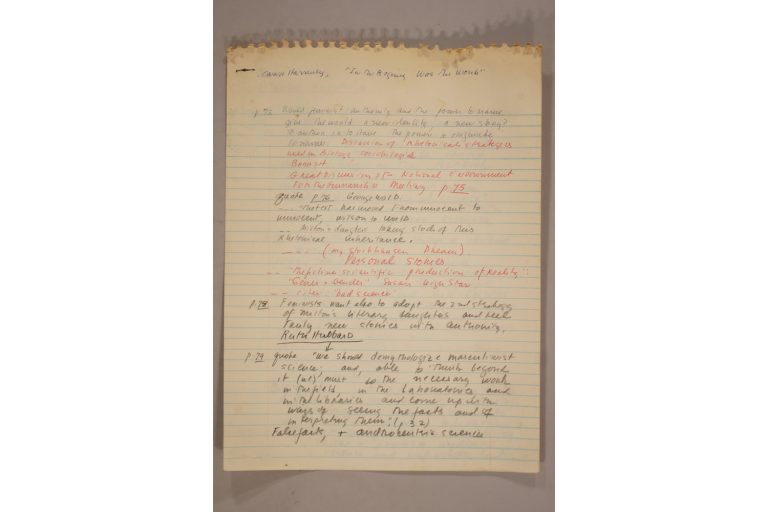 Haraway, "In the Beginning Was the Word"
p.72 Would feminist authority and the power to name
give the world a new identity, a new story?
To author is to have the power to originate
Discussion of rhetorical strategies
used in Biology, sociobiologia
Barash
Great Discussion of National Endowment
For the Humanities Meeting p.75
quote p.76 George Wald.
has moved from innocent to
innocent, Wilson to Wald
Milton's daughter taking stock of this
rhetorical inheritance.
(my Stockhausen Dream)
Personal Stories
The fiction scientific production of Reality":
"Genes + Gender" Susan Leigh Star
cites "bad science"
p.78 Feminists want also to adopt the 2nd strategy
of Milton's literary daughters and tell
new stories with authority.
Ruth Hubbard
p.79 quote "we should demythologize masculinist
science; and, able to think beyond
it (w) must do the necessary work
in the field, in the laboratories and
in the libraries and come up with
ways of seeing the facts and of
interpreting them." (p 32)
False facts, + androcentric science